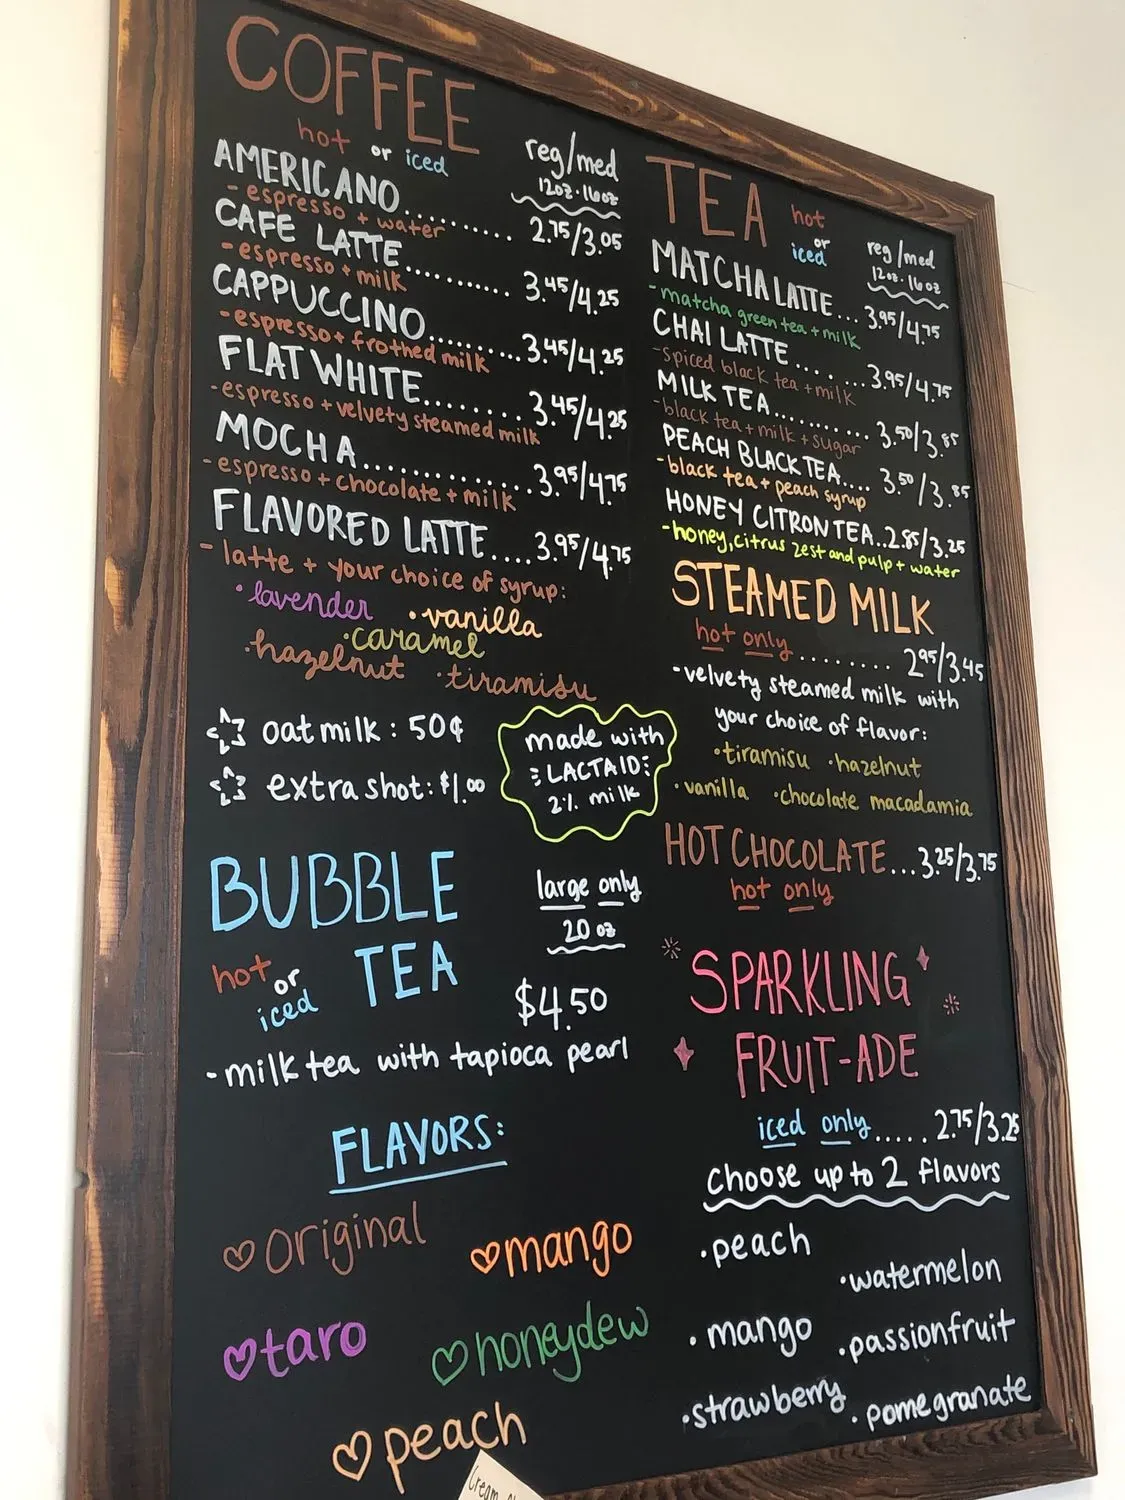 COFFEE
hot or iced
reg/med
12oz · 16oz
AMERICANO........ 2.75/3.05
- espresso + water
CAFE LATTE.......... 3.45/4.25
- espresso + milk
CAPPUCCINO.........3.45/4.25
- espresso + frothed milk
FLAT WHITE........ 3.45/4.25
- espresso + velvety steamed milk
MOCHA..............3.95/4.75
- espresso + chocolate + milk
FLAVORED LATTE....3.95/4.75
- latte + your choice of syrup:
· lavender · vanilla
· caramel
· hazelnut · tiramisu
oat milk : 50¢
extra shot: $1.00
made with
LACTAID
2% milk
BUBBLE
TEA
hot or iced
large only
20 oz
$4.50
- milk tea with tapioca pearl
FLAVORS:
original
mango
taro
honeydew
peach
Cream
TEA
hot or iced
reg/med
12oz · 16oz
MATCHA LATTE... 3.95/4.75
- matcha green tea + milk
CHAI LATTE........3.95/4.75
- spiced black tea + milk
MILK TEA........... 3.50/3.85
- black tea + milk + sugar
PEACH BLACK TEA.... 3.50/3.85
- black tea + peach syrup
HONEY CITRON TEA..2.85/3.25
- honey, citrus zest and pulp + water
STEAMED MILK
hot only......... 2.95/3.45
- velvety steamed milk with
your choice of flavor:
· tiramisu · hazelnut
· vanilla · chocolate macadamia
HOT CHOCOLATE...3.25/3.75
hot only
SPARKLING
FRUIT-ADE
iced only..... 2.75/3.25
choose up to 2 flavors
· peach
· watermelon
· mango
· passionfruit
· strawberry
· pomegranate